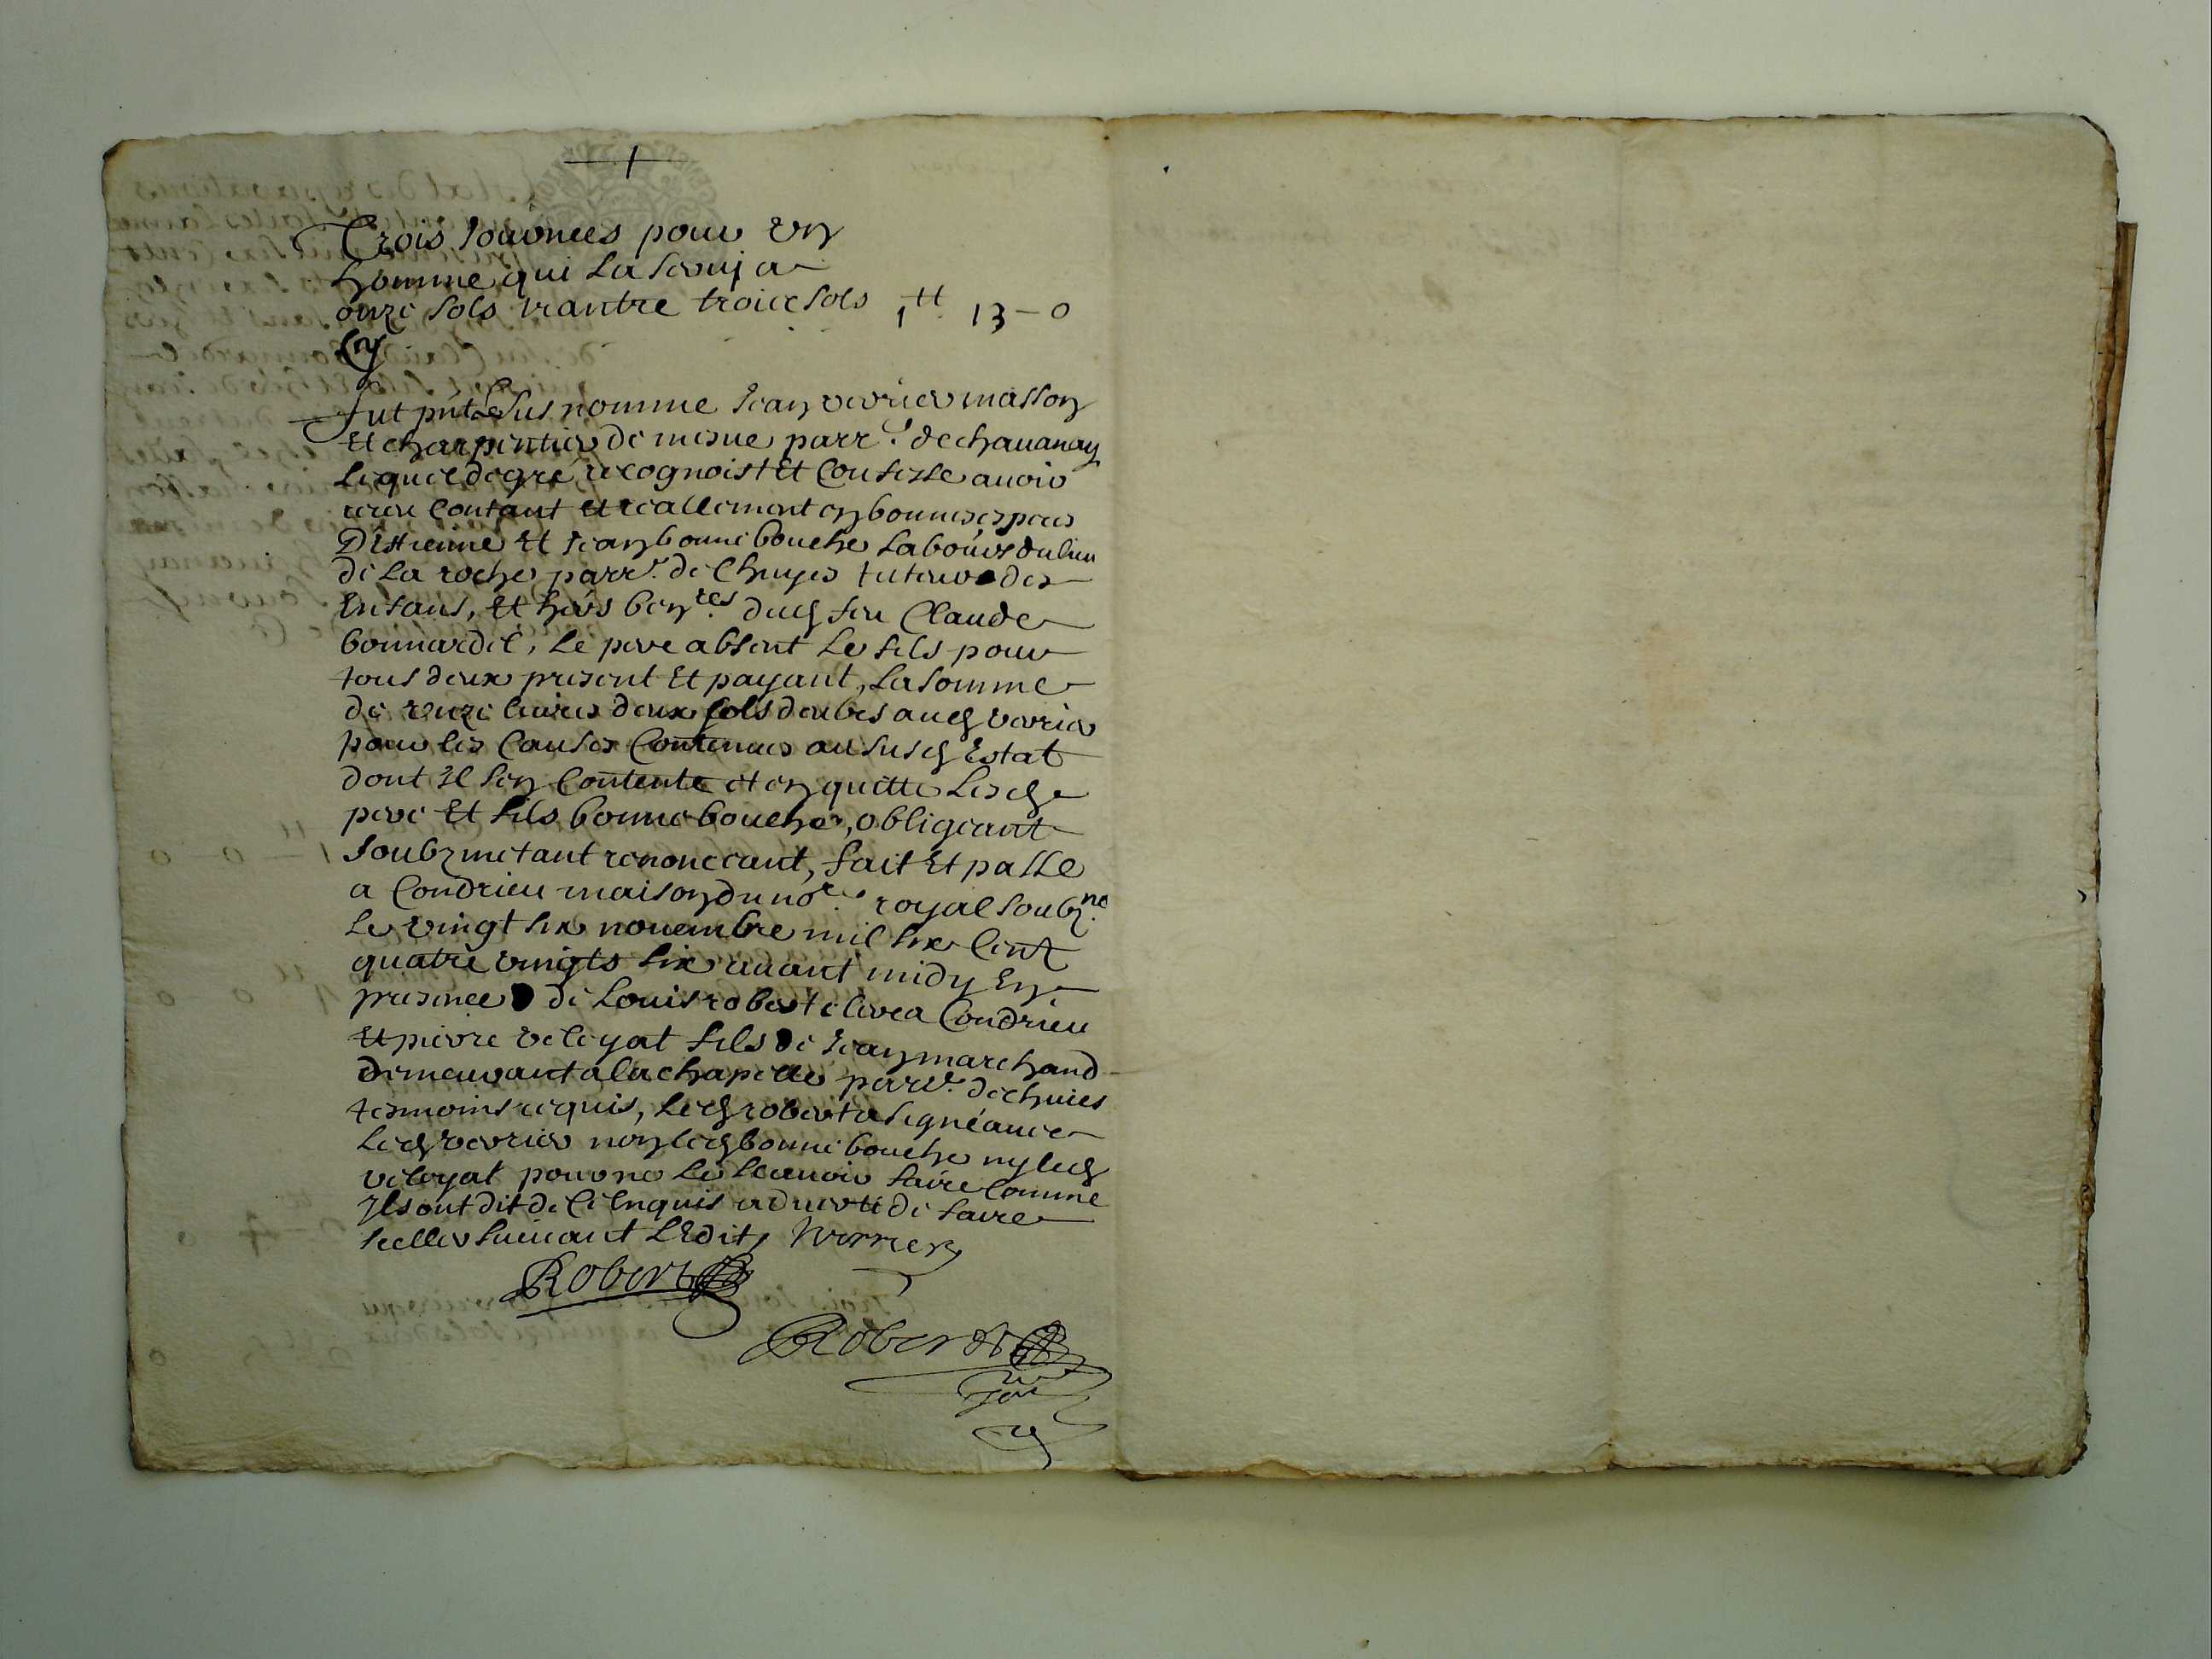 Trois Journees pour un
homme qui la servy a
onze sols trantre troice sols 1 tt 13 - 0
Cy
fut p̃nt Le Susnomme Jean verrier masson
Et charpentier de mesve parr.e de chauanay
Lequel degré recognoist Et Confesse auoir
receu Contant et reallement en bonnes especes
D'Estienne Et Jean bonnebouche Labours du lieu
de La roche parr.e de Chuyes tuteurs des
Enfans, Et hers ben.res dud feu Claude
bonnardel, Le pere absent Le fils pour
tous deux present Et payant, La somme
de unze liures deux sols deubes aud verrier
pour les Causes Contenues au susd Estat
dont Il sen Contente et en quitte Lesd
pere Et fils bonnebouche, obligeant
soubzmetant renonceant, fait Et passe
a Condrieu maison du no.re royal soubz.ne
Le vingt six nouembre mil six Cent
quatre vingts six auant midy En
presence de Louis robert clerc a Condrieu
Et pierre veleyat fils de Jean marchand
demeurant a la chapelle parr.e de chuies
tesmoins requis, Led robert a signé auec
Led verrier non led bonnebouche ny led
veleyat pour ne Le scauoir faire Comme
Ils ont dit de Ce Enquis aduerti de faire
seeller suiuant L'Edit, Verrier
Robert
Robert